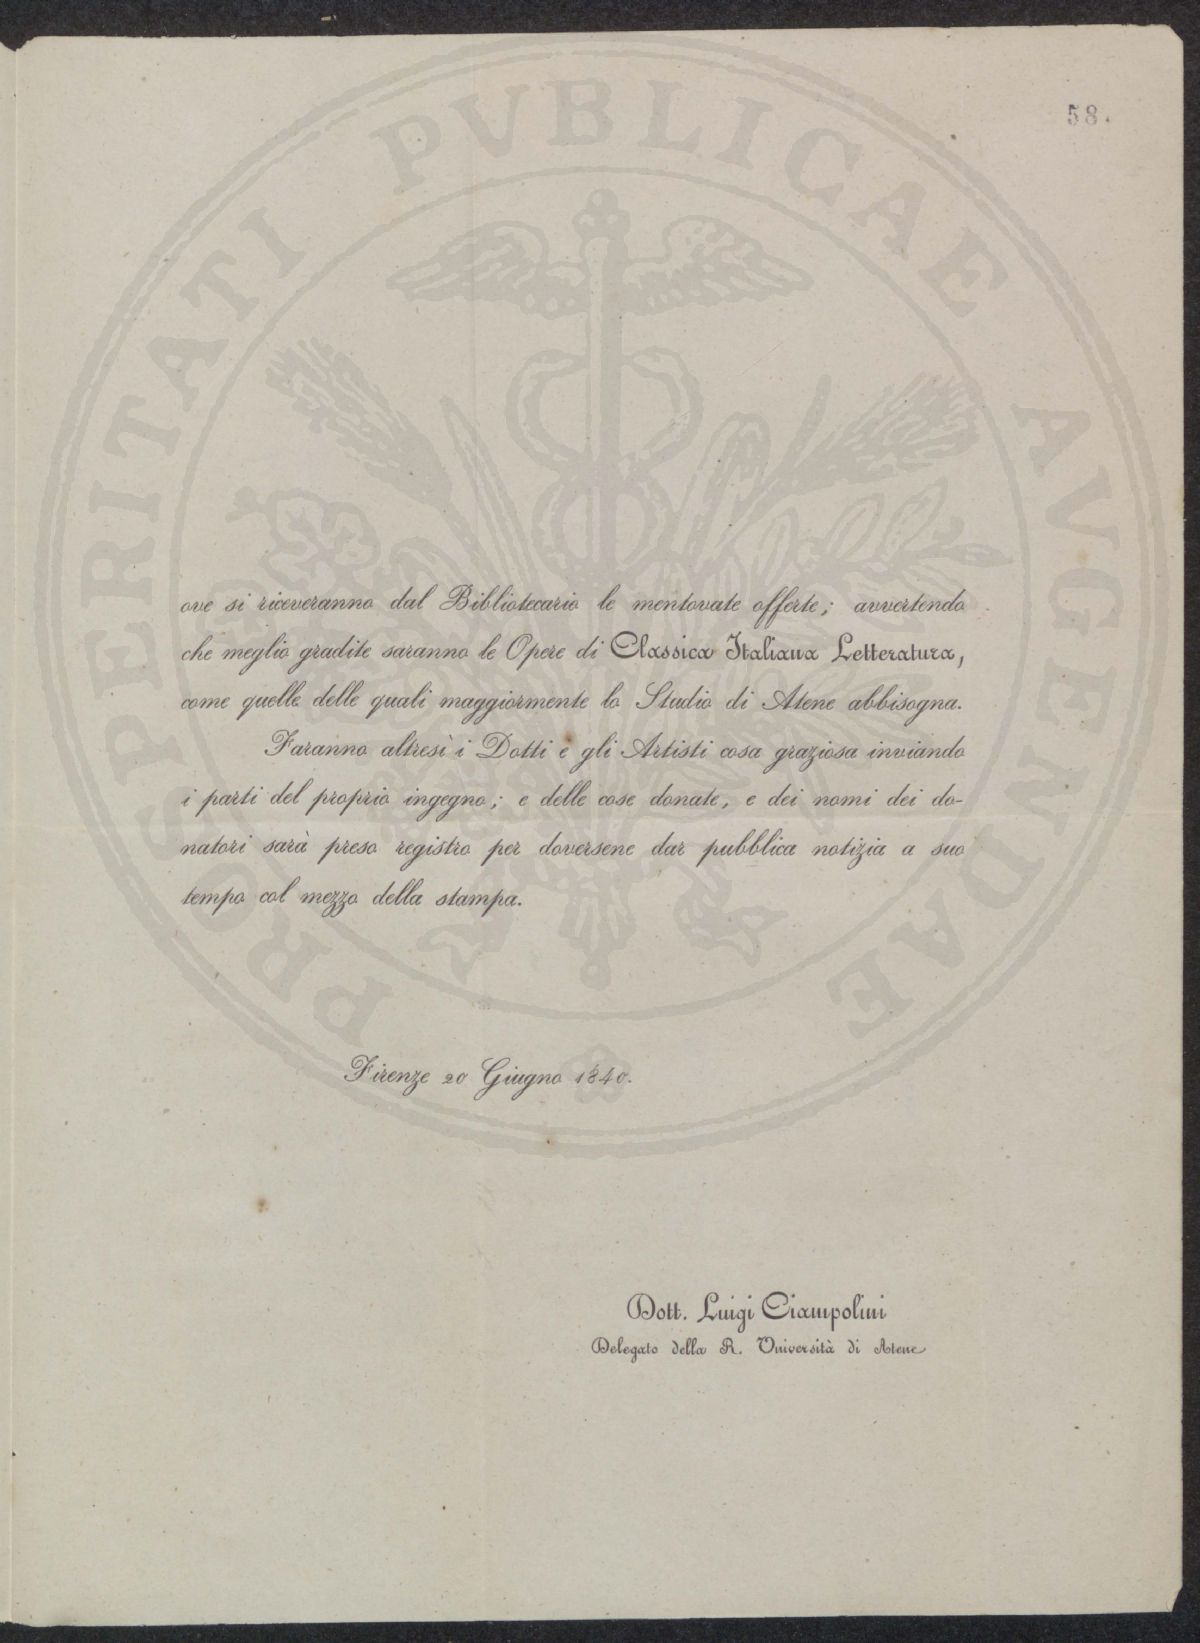 58.
PROSPERITATI PVBLICAE AVGENDAE
ove si riceveranno dal Bibliotecario le mentovate offerte; avvertendo
che meglio gradite saranno le Opere di Classica Italiana Letteratura,
come quelle delle quali maggiormente lo Studio di Atene abbisogna.
Faranno altresì i Dotti e gli Artisti cosa graziosa inviando
i parti del proprio ingegno; e delle cose donate, e dei nomi dei do-
natori sarà preso registro per doversene dar pubblica notizia a suo
tempo col mezzo della stampa.
Firenze 20 Giugno 1840.
Dott. Luigi Ciampolini
Delegato della R. Università di Atene